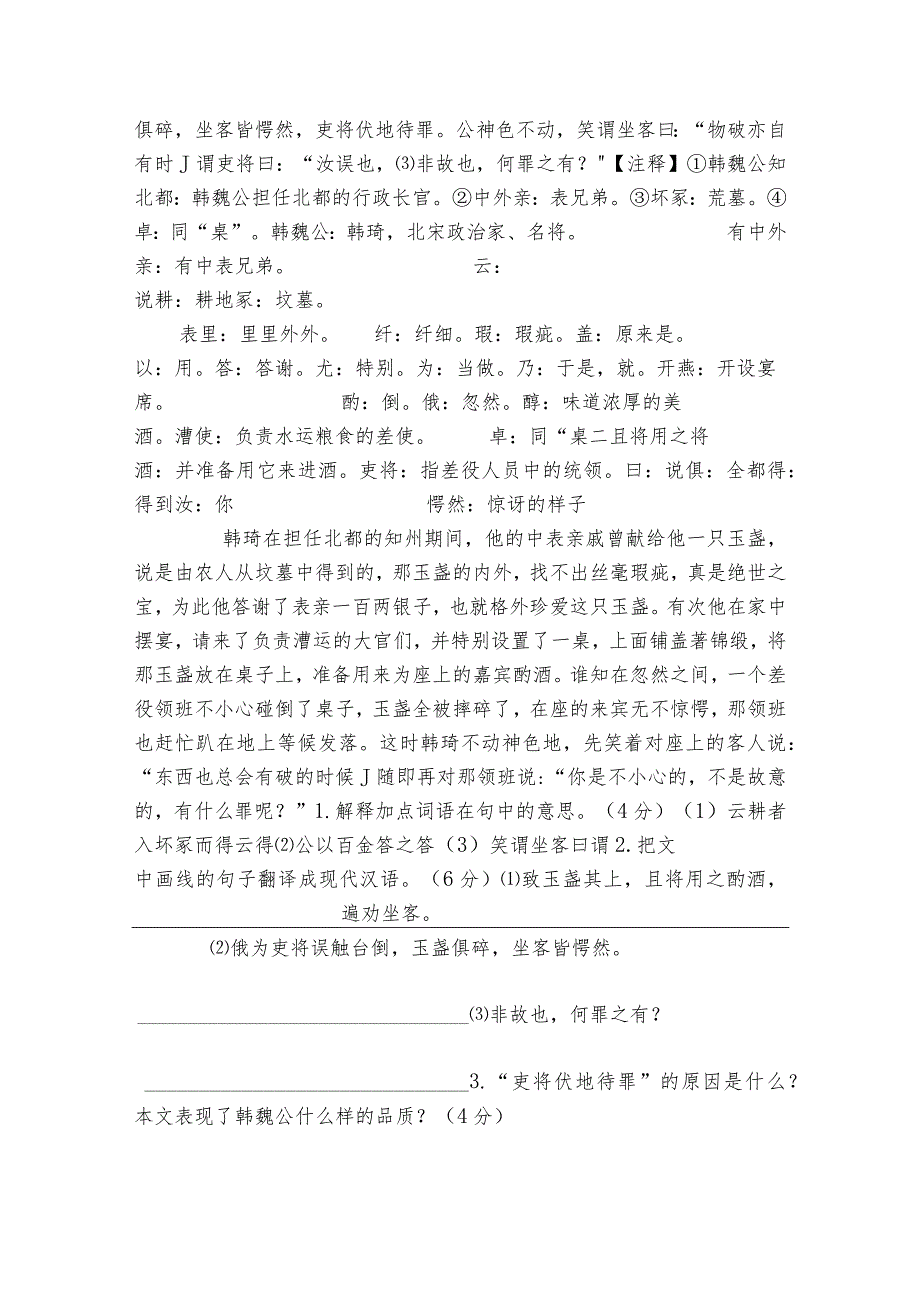 俱碎，坐客皆愕然，吏将伏地待罪。公神色不动，笑谓坐客曰：“物破亦自
有时J谓吏将曰：“汝误也，⑶非故也，何罪之有？"【注释】①韩魏公知
北都：韩魏公担任北都的行政长官。②中外亲：表兄弟。③坏冢：荒墓。④
卓：同“桌”。韩魏公：韩琦，北宋政治家、名将。 有中外
亲：有中表兄弟。 云：
说耕：耕地冢：坟墓。
表里：里里外外。 纤：纤细。瑕：瑕疵。盖：原来是。
以：用。答：答谢。尤：特别。为：当做。乃：于是，就。开燕：开设宴
席。 酌：倒。俄：忽然。醇：味道浓厚的美
酒。漕使：负责水运粮食的差使。 卓：同“桌二且将用之将
酒：并准备用它来进酒。吏将：指差役人员中的统领。曰：说俱：全都得：
得到汝：你 愕然：惊讶的样子
韩琦在担任北都的知州期间，他的中表亲戚曾献给他一只玉盏，
说是由农人从坟墓中得到的，那玉盏的内外，找不出丝毫瑕疵，真是绝世之
宝，为此他答谢了表亲一百两银子，也就格外珍爱这只玉盏。有次他在家中
摆宴，请来了负责漕运的大官们，并特别设置了一桌，上面铺盖著锦缎，将
那玉盏放在桌子上，准备用来为座上的嘉宾酌酒。谁知在忽然之间，一个差
役领班不小心碰倒了桌子，玉盏全被摔碎了，在座的来宾无不惊愕，那领班
也赶忙趴在地上等候发落。这时韩琦不动神色地，先笑着对座上的客人说：
“东西也总会有破的时候J随即再对那领班说:“你是不小心的，不是故意
的，有什么罪呢？”1.解释加点词语在句中的意思。（4分）（1）云耕者
入坏冢而得云得⑵公以百金答之答（3）笑谓坐客曰谓2.把文
中画线的句子翻译成现代汉语。（6分）⑴致玉盏其上，且将用之酌酒，
遍劝坐客。
⑵俄为吏将误触台倒，玉盏俱碎，坐客皆愕然。
_________________________________⑶非故也，何罪之有？
_________________________________3.“吏将伏地待罪”的原因是什么？
本文表现了韩魏公什么样的品质？（4分）